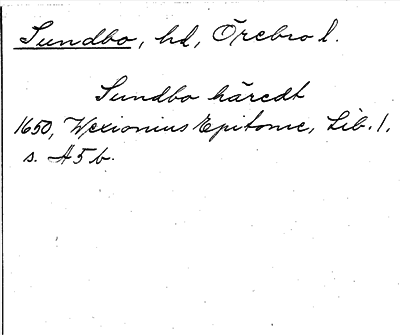 Sundbo, hd, Örebro l.
Sundbo häredt
1650, Wexionius Epitome, Lib. 1,
s. A5b.